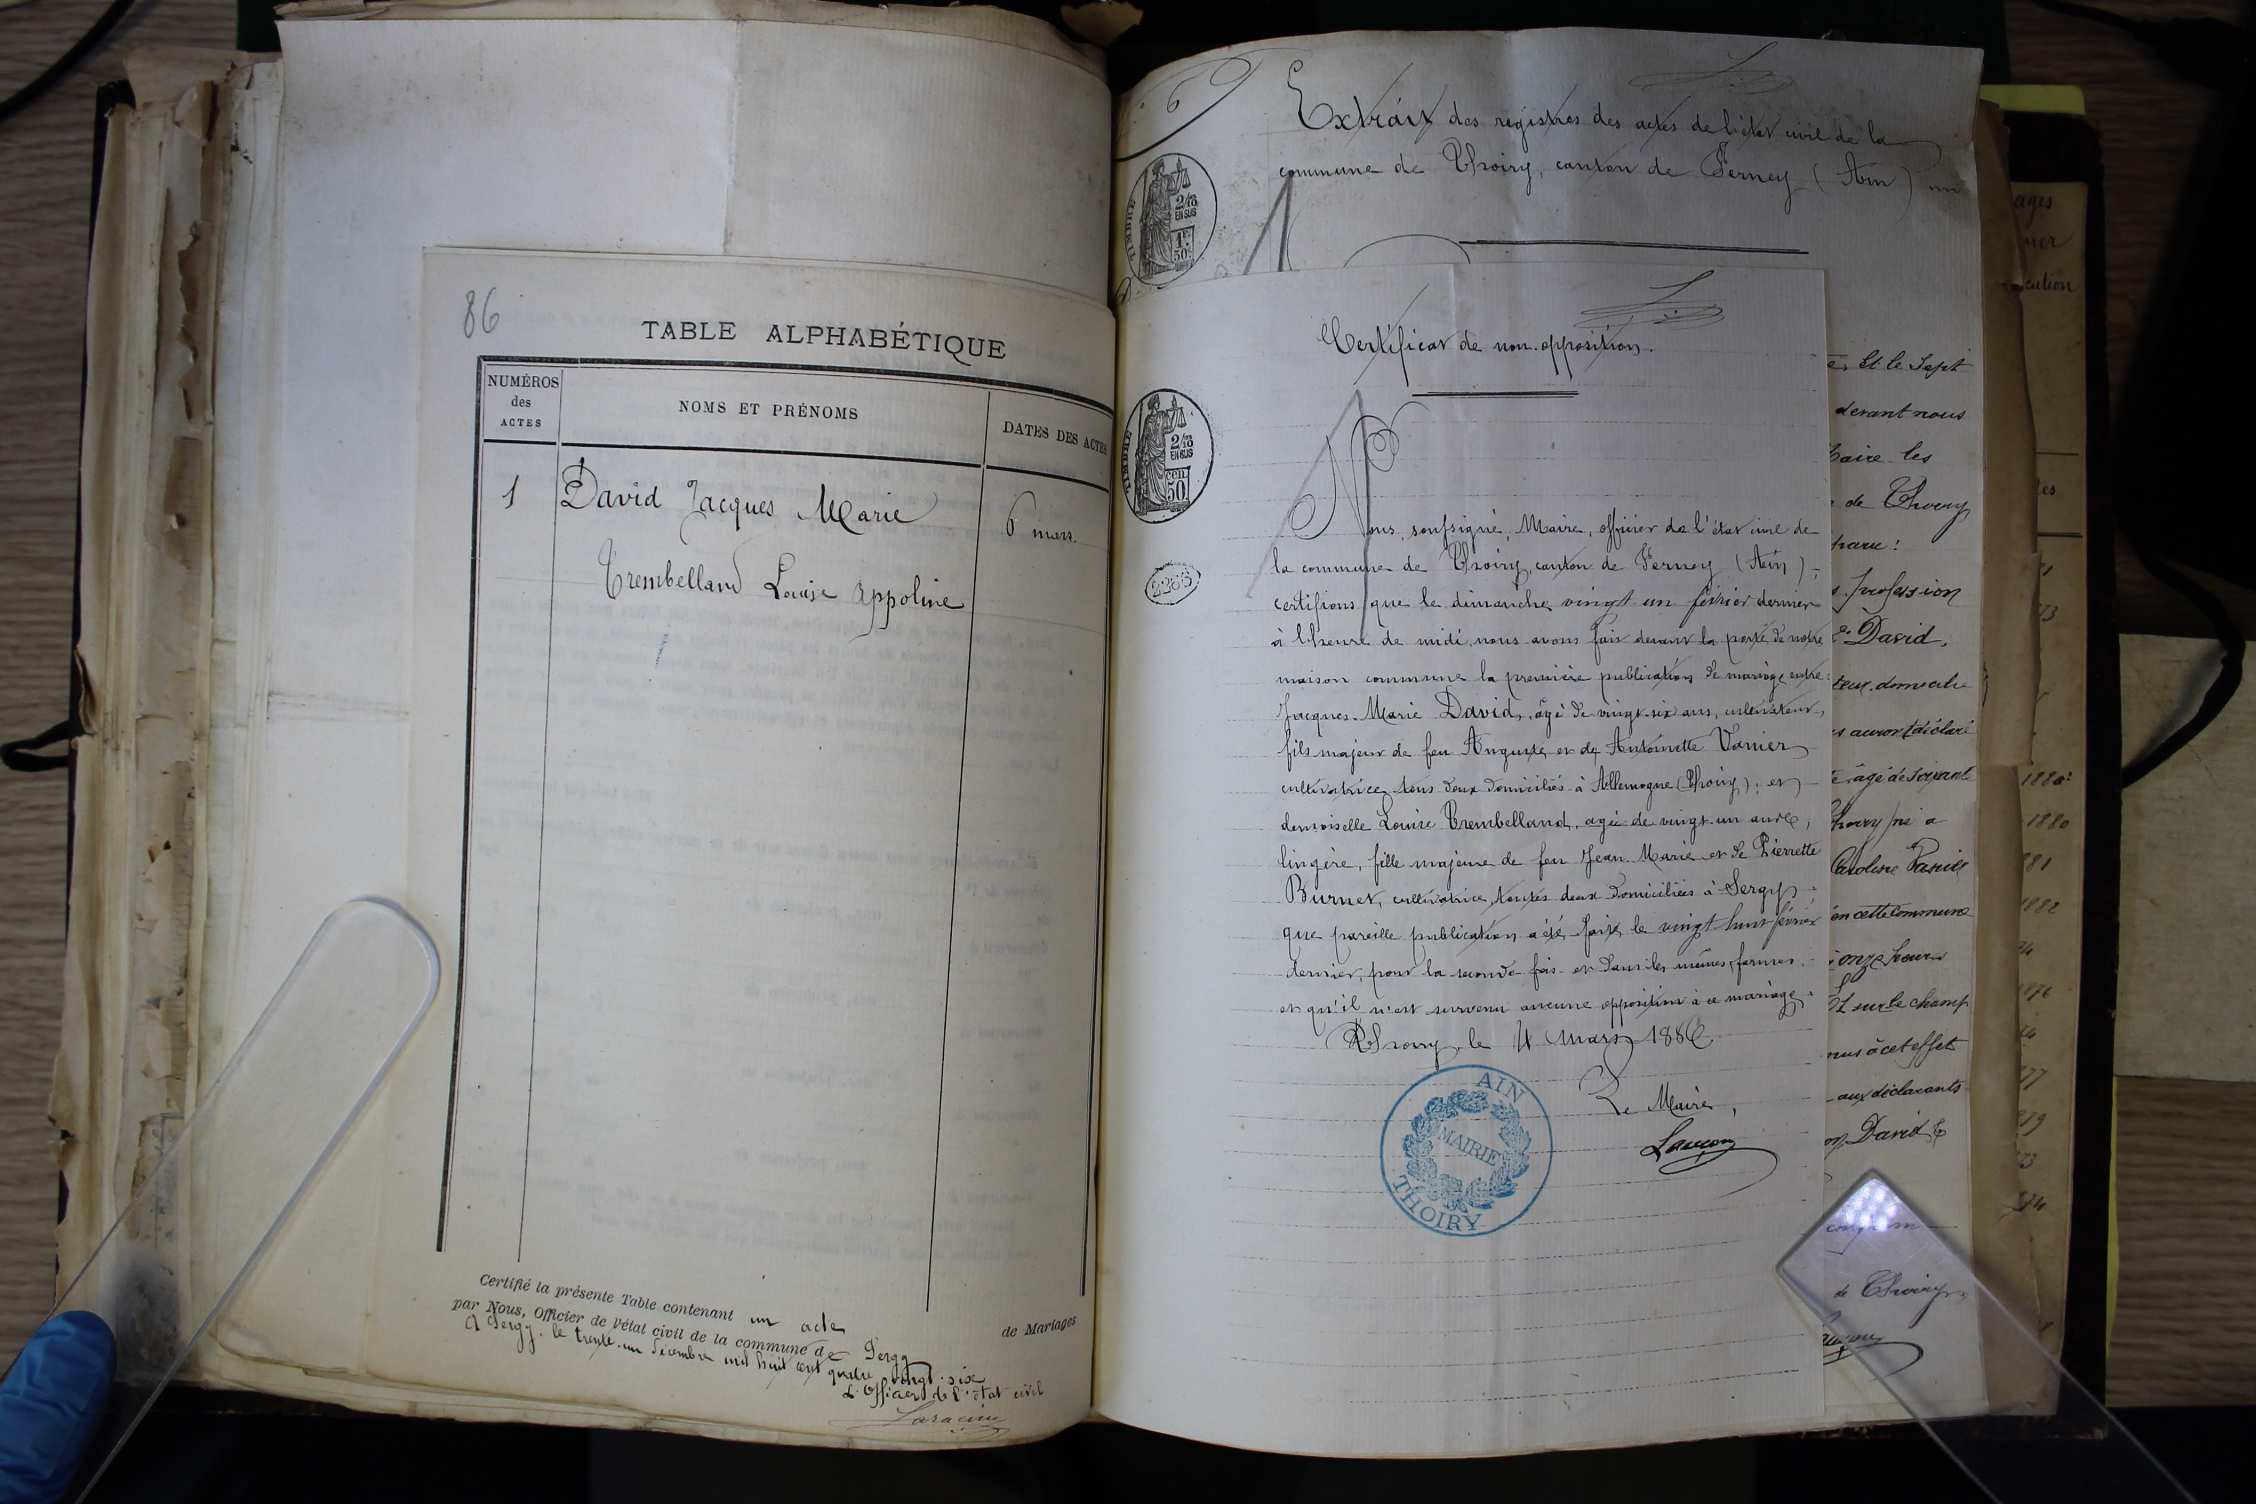 86
TABLE ALPHABÉTIQUE
NUMÉROS
des
ACTES
NOMS ET PRÉNOMS
DATES DES ACTES
1
David Jacques Marie
6 mars.
Trembelland Louise Appoline
Certifié la présente Table contenant un acte de Mariages
par Nous, Officier de l'état civil de la commune de Sergy
A Sergy, le trente-un décembre mil huit cent quatre vingt-six
L'officier de l'état civil
6
Extrait des registres des actes de l'état civil de la
commune de Thoiry, canton de Ferney (Ain)
TIMBRE
2/10
EN SUS
1F.
50.
Certificat de non opposition.
TIMBRE
2/10
EN SUS
cen.
50.
2263
Nous, soussigné, Maire, officier de l'état civil de
la commune de Thoiry, canton de Ferney (Ain);
certifions que le dimanche vingt un février dernier
à l'heure de midi, nous avons fait devant la porte de notre
maison commune la première publication de mariage entre
Jacques-Marie David, âgé de vingt-six ans, cultivateur,
fils majeur de feu Auguste et de Antoinette Vanier
cultivatrice, tous deux domiciliés à Allemogne (Thoiry); et
demoiselle Louise Trembelland, agée de vingt-un ans,
lingère, fille majeure de feu Jean Marie et de Pierrette
Burnet, cultivatrice, toutes deux domiciliées à Sergy
que pareille publication a été faite le vingt huit février
dernier, pour la seconde fois et dans les mêmes formes
et qu'il n'est survenu aucune opposition à ce mariage.
Thoiry, le 4 mars 1886
Le Maire,
AIN
MAIRIE
THOIRY
et le Sept
devant nous
Maire les
de Thoiry
profession
David,
domicilié
auront déclaré
âgé de soixante
Thoiry né à
Caroline
en cette commune
onze heures
Et sur le champ
à cet effet
aux déclarants
David &
de Thoiry,
ages
1880
1880
881
1882